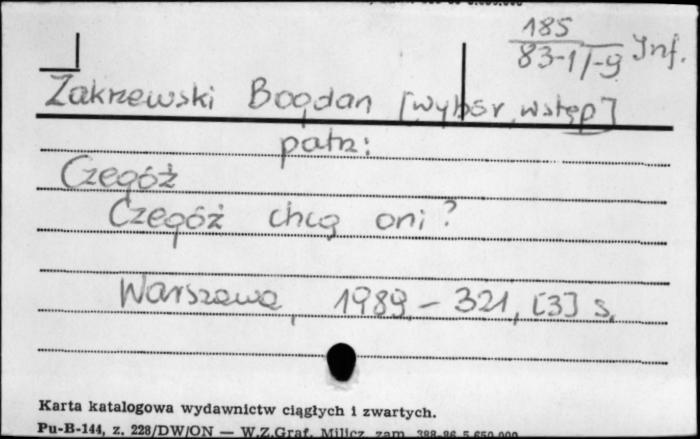 185
83-1/-9 Inf.
Zakrzewski Bogdan [wybór, wstęp]
patrz:
Czegóż
Czegóż chcą oni?
Warszawa, 1989. - 321, [3] s.
Karta katalogowa wydawnictw ciągłych i zwartych.
Pu-B-144, z. 228/DW/ON — W.Z.Graf. Milicz zam. 388-86 5.650.000